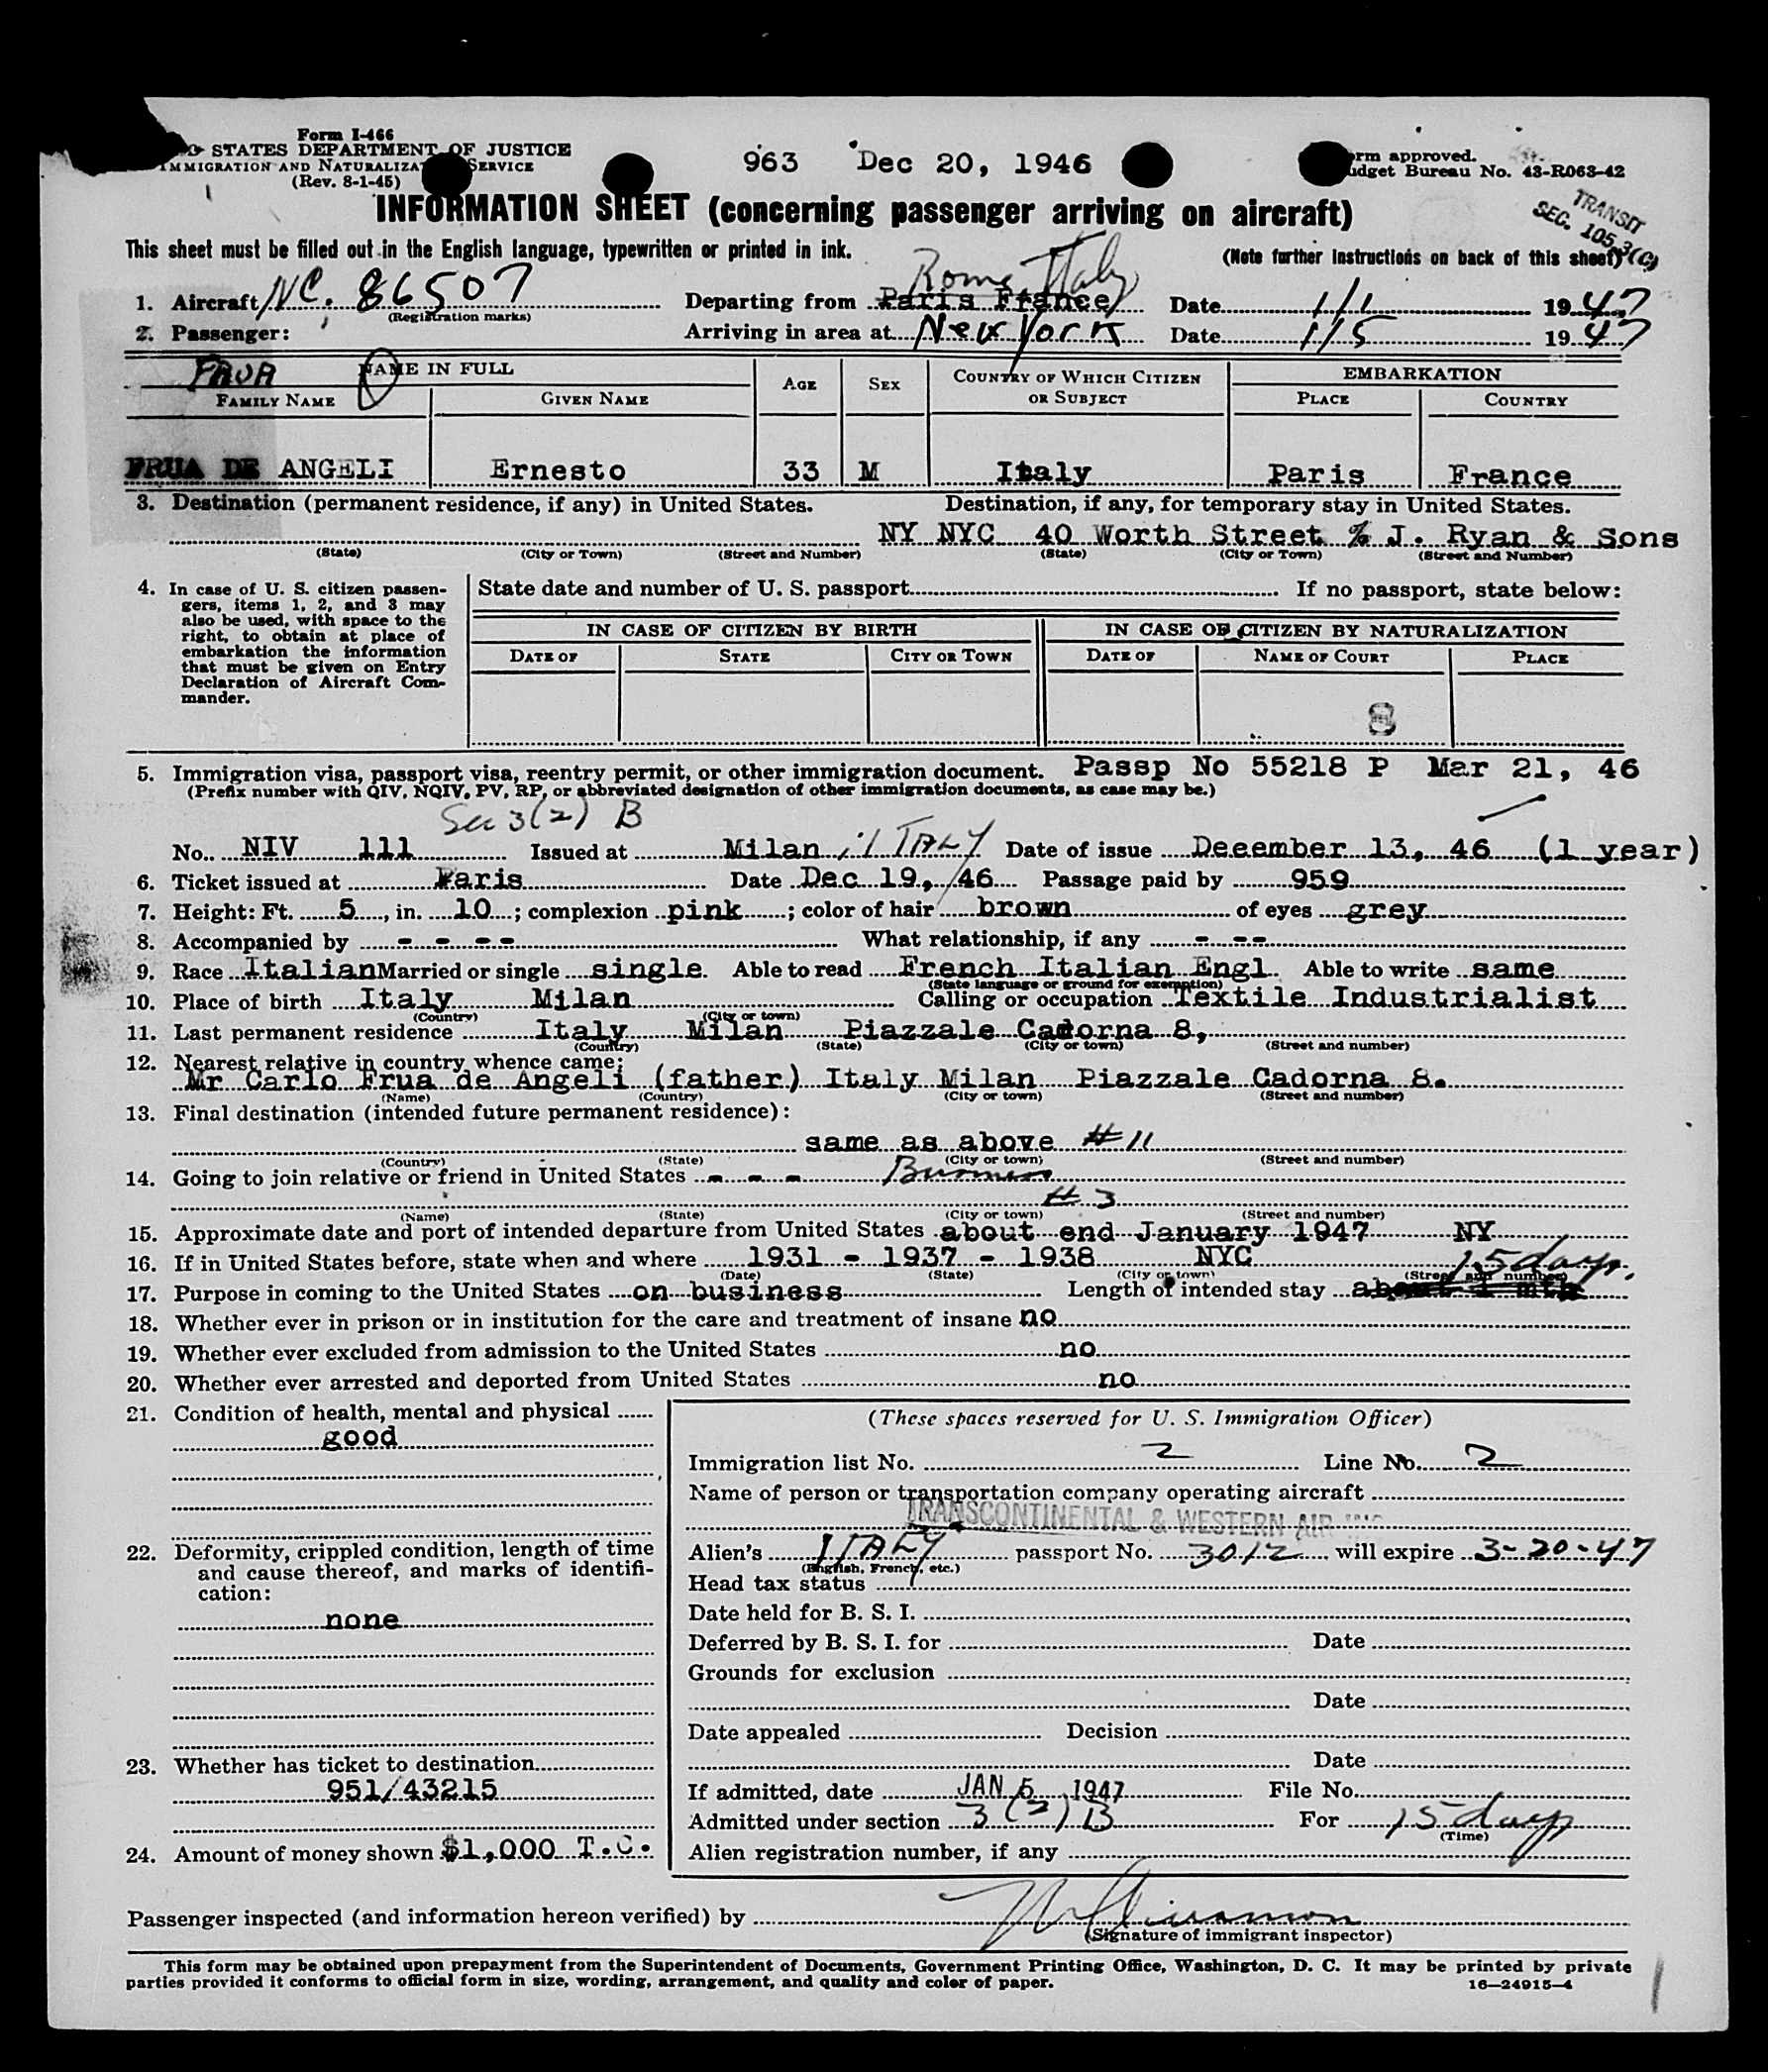 Form I-466
STATES DEPARTMENT OF JUSTICE
IMMIGRATION AND NATURALIZAT SERVICE
(Rev. 8-1-45)
963 Dec 20, 1946
rm approved.
udget Bureau No. 43-R063-42
TRANSIT
SEC. 105.3(C)
INFORMATION SHEET (concerning passenger arriving on aircraft)
This sheet must be filled out in the English language, typewritten or printed in ink.
(Note further instructions on back of this sheet)
Rome, Italy
1. Aircraft NC. 86507 Departing from Paris France Date 1/1 1947
(Registration marks)
2. Passenger: Arriving in area at New York Date 1/5 1947
FRUA NAME IN FULL AGE SEX COUNTRY OF WHICH CITIZEN OR SUBJECT EMBARKATION
FAMILY NAME GIVEN NAME PLACE COUNTRY
FRUA DE ANGELI Ernesto 33 M Italy Paris France
3. Destination (permanent residence, if any) in United States. Destination, if any, for temporary stay in United States.
NY NYC 40 Worth Street % J. Ryan & Sons
(State) (City or Town) (Street and Number) (State) (City or Town) (Street and Number)
4. In case of U. S. citizen passen-
gers, items 1, 2, and 3 may
also be used, with space to the
right, to obtain at place of
embarkation the information
that must be given on Entry
Declaration of Aircraft Com-
mander.
State date and number of U. S. passport If no passport, state below:
IN CASE OF CITIZEN BY BIRTH IN CASE OF CITIZEN BY NATURALIZATION
DATE OF STATE CITY OR TOWN DATE OF NAME OF COURT PLACE
8
5. Immigration visa, passport visa, reentry permit, or other immigration document. Passp No 55218 P Mar 21, 46
(Prefix number with QIV, NQIV, PV, RP, or abbreviated designation of other immigration documents, as case may be.)
Sec 3(2) B
No. NIV 111 Issued at Milan ITALY Date of issue Deeember 13, 46 (1 year)
6. Ticket issued at Paris Date Dec 19, 46 Passage paid by 959
7. Height: Ft. 5, in. 10; complexion pink; color of hair brown of eyes grey
8. Accompanied by - - - - What relationship, if any - - -
9. Race Italian Married or single single. Able to read French Italian Engl. Able to write same
(State language or ground for exemption)
10. Place of birth Italy Milan Calling or occupation Textile Industrialist
(Country) (City or town)
11. Last permanent residence Italy Milan Piazzale Cadorna 8,
(Country) (State) (City or town) (Street and number)
12. Nearest relative in country whence came:
Mr Carlo Frua de Angeli (father) Italy Milan Piazzale Cadorna 8.
(Name) (Country) (City or town) (Street and number)
13. Final destination (intended future permanent residence):
same as above #11
(Country) (State) (City or town) (Street and number)
14. Going to join relative or friend in United States - - - Business
#3
(Name) (State) (City or town) (Street and number)
15. Approximate date and port of intended departure from United States about end January 1947 NY
16. If in United States before, state when and where 1931 - 1937 - 1938 NYC
(Date) (State) (City or town) (Street and number)
15 days.
17. Purpose in coming to the United States on business Length of intended stay about 1 mth
18. Whether ever in prison or in institution for the care and treatment of insane no
19. Whether ever excluded from admission to the United States no
20. Whether ever arrested and deported from United States no
21. Condition of health, mental and physical
good
22. Deformity, crippled condition, length of time
and cause thereof, and marks of identifi-
cation:
none
23. Whether has ticket to destination
951/43215
24. Amount of money shown $1,000 T.C.
(These spaces reserved for U. S. Immigration Officer)
Immigration list No. 2 Line No. 2
Name of person or transportation company operating aircraft
TRANSCONTINENTAL & WESTERN AIR INC
Alien's ITALY passport No. 3012 will expire 3-20-47
(English, French, etc.)
Head tax status
Date held for B. S. I.
Deferred by B. S. I. for Date
Grounds for exclusion
Date
Date appealed Decision
Date
If admitted, date JAN 5 1947 File No.
Admitted under section 3(2)B For 15 days
(Time)
Alien registration number, if any
Passenger inspected (and information hereon verified) by
(Signature of immigrant inspector)
This form may be obtained upon prepayment from the Superintendent of Documents, Government Printing Office, Washington, D. C. It may be printed by private
parties provided it conforms to official form in size, wording, arrangement, and quality and color of paper. 16—24915-4